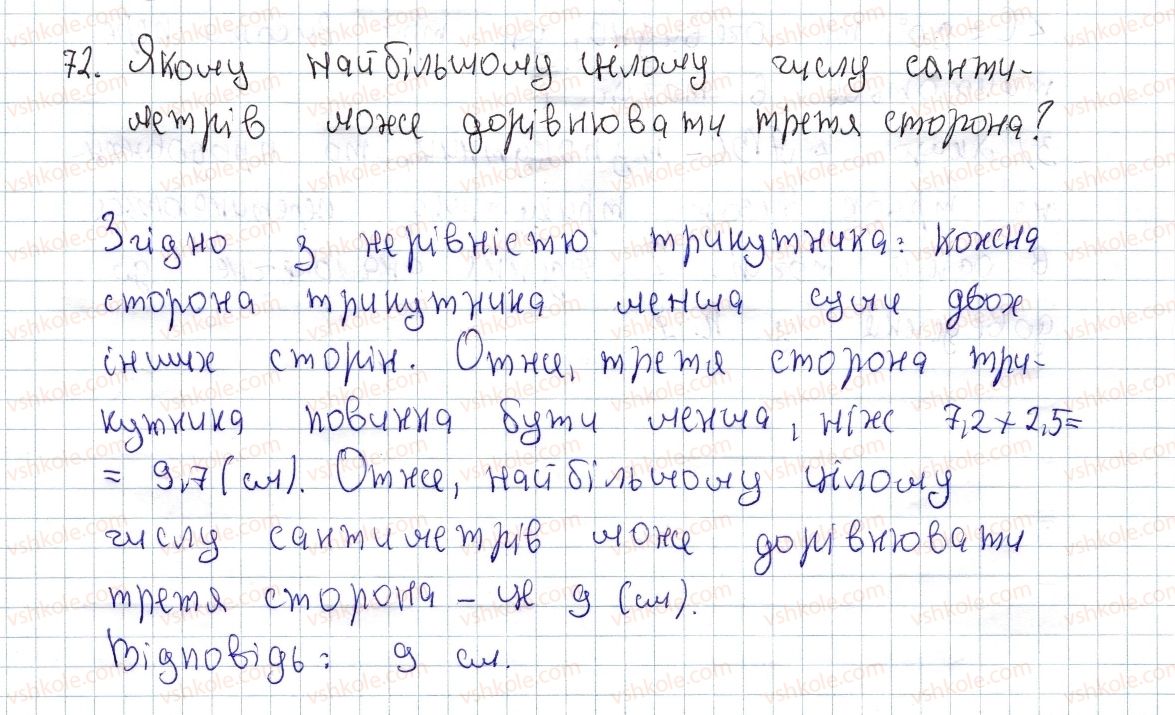 72. Якому найбільшому цілому числу санти-
метрів може дорівнювати третя сторона?
Згідно з нерівністю трикутника: кожна
сторона трикутника менша суми двох
інших сторін. Отже, третя сторона три-
кутника повинна бути менша, ніж 7,2+2,5=
= 9,7 (см). Отже, найбільшому цілому
числу сантиметрів може дорівнювати
третя сторона – це 9 (см).
Відповідь: 9 см.